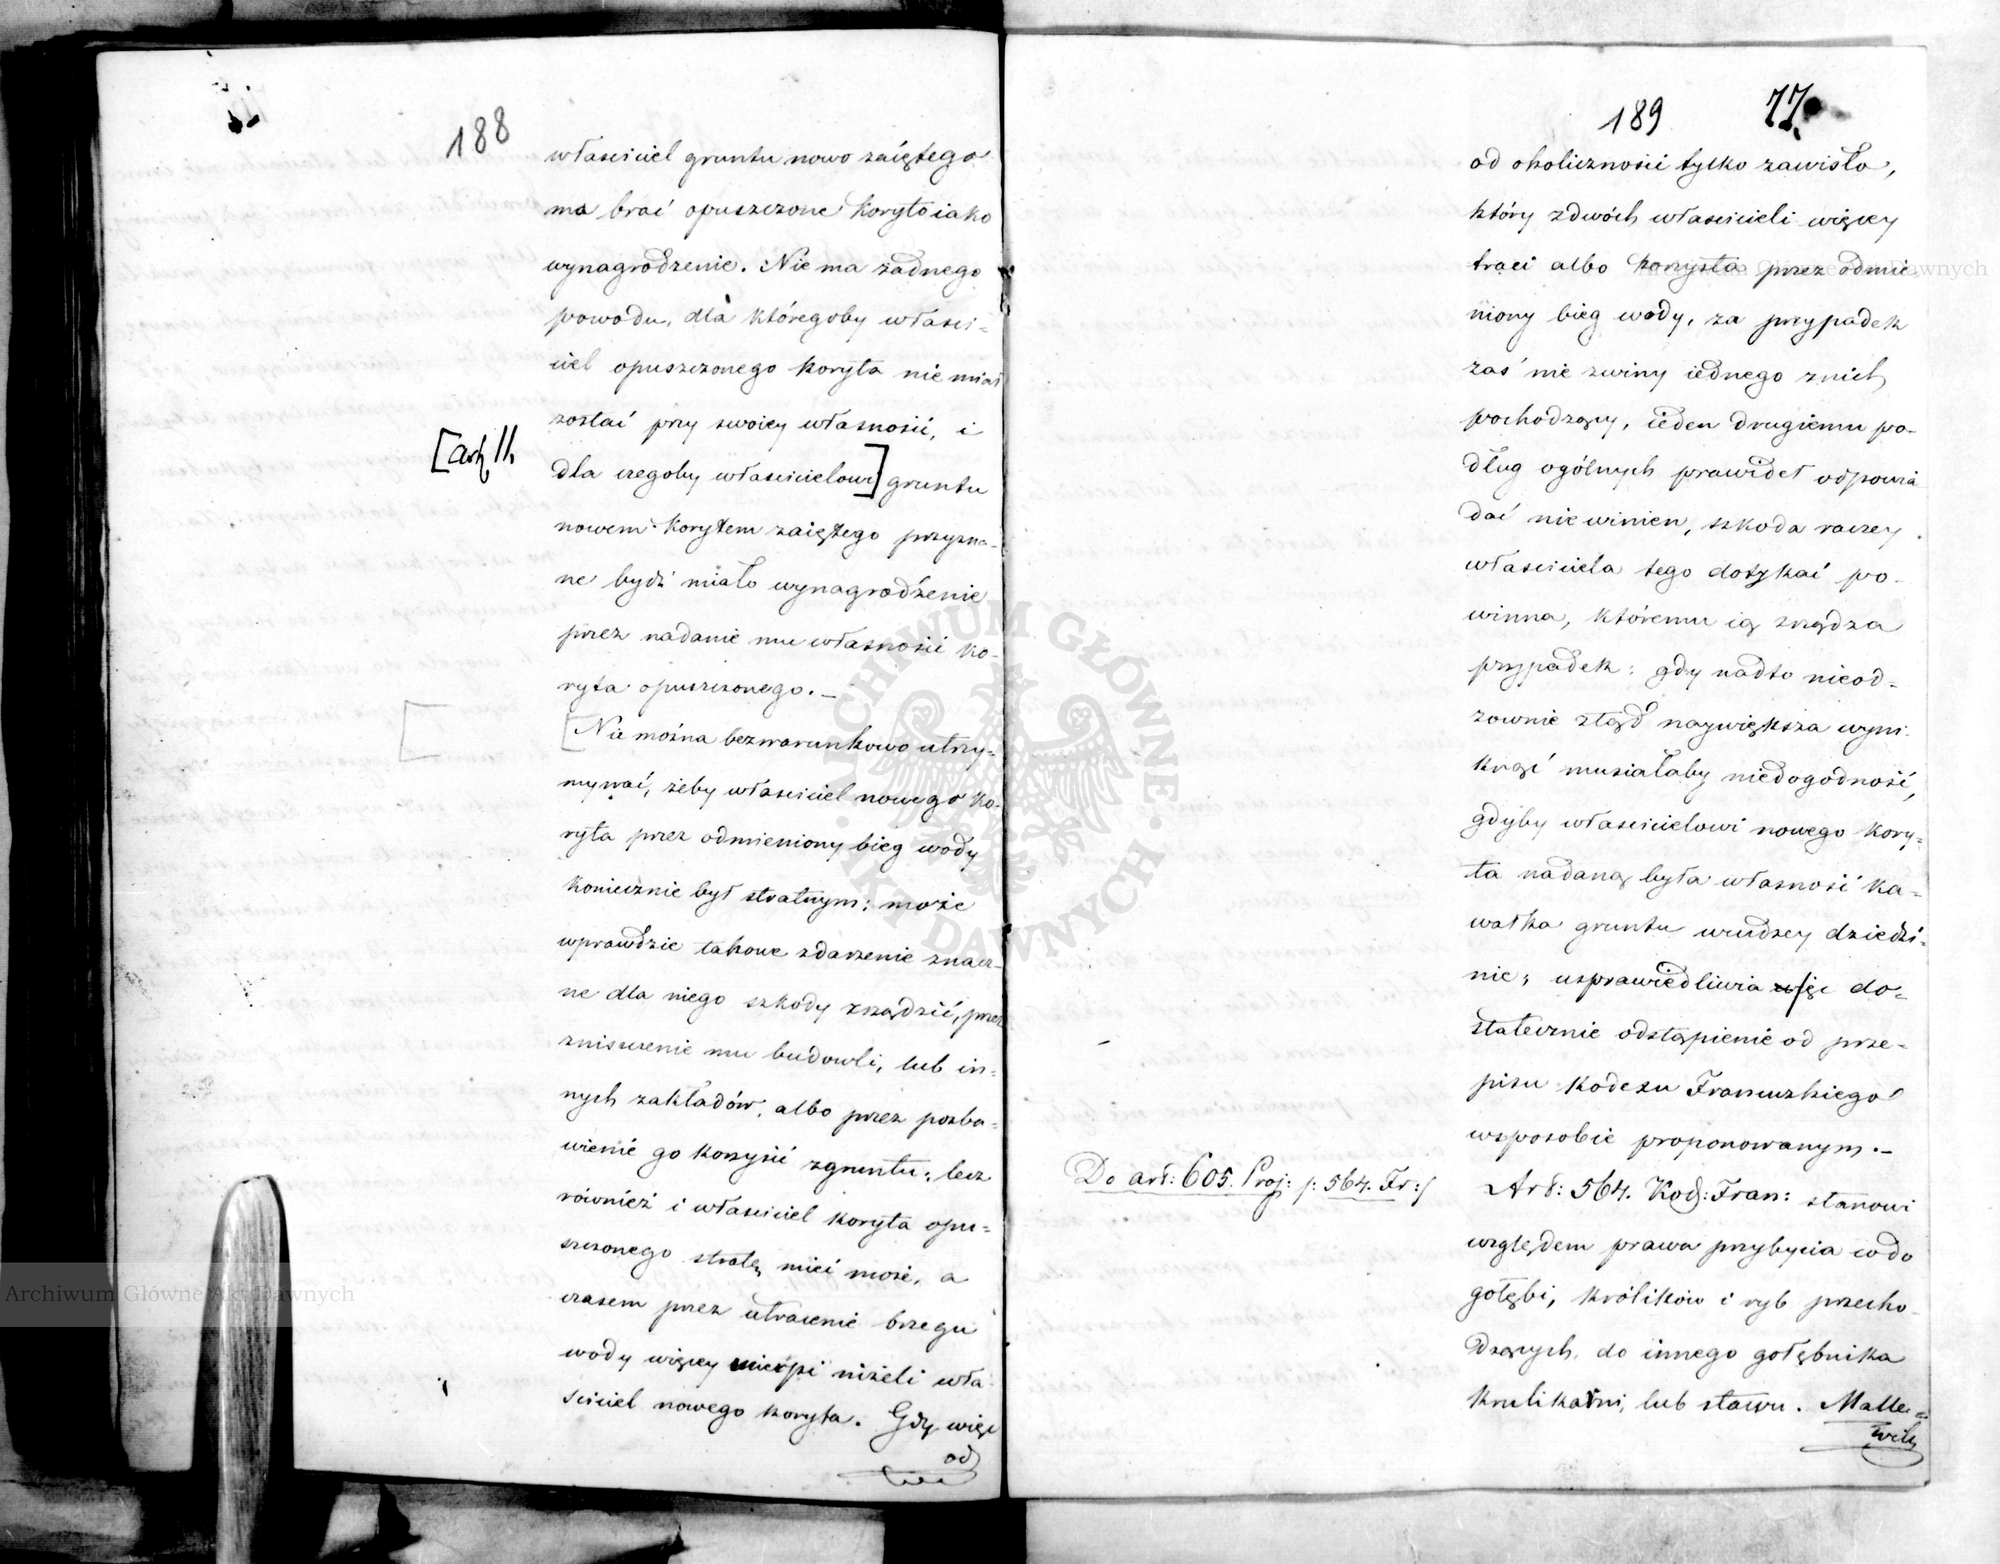 188
właściciel gruntu nowo zaiętego
ma brać opuszczone koryto iako
wynagrodzenie. Nie ma żadnego
powodu, dla któregoby właści-
ciel opuszczonego koryta nie miał
zostać przy swoiey własności, i
[ark 11.
dla czegoby właścicielowi] gruntu
nowem korytem zaiętego przyzna-
ne bydź miało wynagrodzenie
przez nadanie mu własności ko-
ryta opuszczonego. —
[Nie można bezwarunkowo utrzy-
mywać, żeby właściciel nowego ko-
ryta przez odmieniony bieg wody
koniecznie był stratnym; może
wprawdzie takowe zdarzenie znacz-
ne dla niego szkody zrządzić, przez
zniszczenie mu budowli, lub in-
nych zakładów, albo przez pozba-
wienie go korzyści zgruntu; lecz
również i właściciel koryta opu-
szczonego stratę mieć może, a
czasem przez utracenie brzegu
wody więcey cierpi niżeli wła-
ściciel nowego koryta. Gdy więc
od
189 77.
od okoliczności tylko zawisło,
który zdwóch właścicieli więcey
traci albo korzysta przez odmie
niony bieg wody, za przypadek
zaś nie zwiny iednego znich
pochodzący, ieden drugiemu po-
dług ogólnych prawideł odpowia
dać nie winien, szkoda raczey
właściciela tego dotykać po-
winna, któremu ią zrządza
przypadek: gdy nadto nieod-
zownie ztąd naywiększa wyni-
knąć musiałaby niedogodność,
gdyby właścicielowi nowego kory-
ta nadaną była własność ka-
wałka gruntu wcudzey dziedzi-
nie; usprawiedliwia więc do-
statecznie odstąpienie od prze-
pisu Kodexu Francuzkiego
wsposobie proponowanym. —
Do art: 605. Proj: /: 564. Fr:/
Art: 564. Kod: Fran: stanowi
względem prawa przybycia co do
gołębi, królików i ryb przecho-
dzących do innego gołębnika
krulikarni, lub stawu. Malle-
ville
Archiwum Główne Akt Dawnych
Archiwum Główne Akt Dawnych
ARCHIWUM GŁÓWNE · AKT DAWNYCH ·